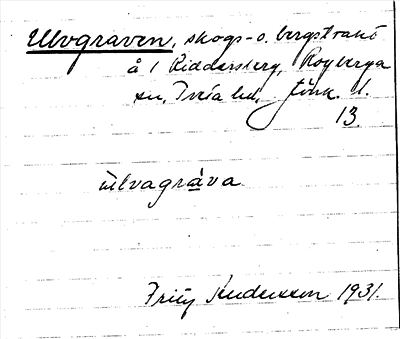 Ulvgraven, skogs- o. bergstrakt
å 1 Riddersberg, Rogberga
sn, Tveta hd, Jönk. l.
13.
ulvagràva
Fritz Andersson 1931.